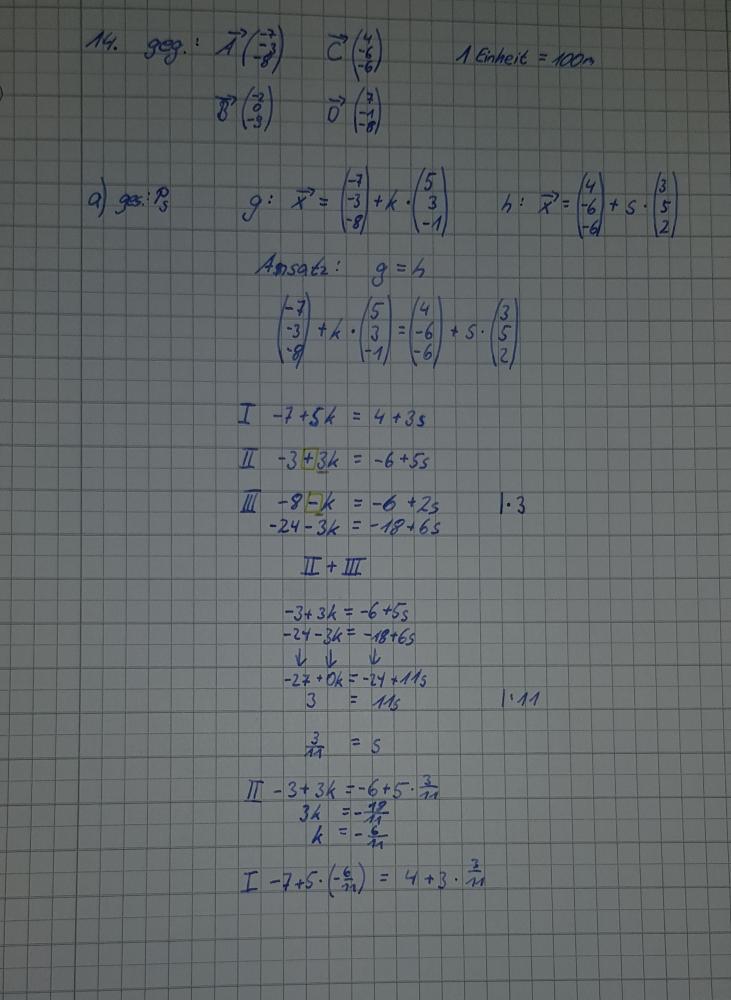 14. geg.: A⃗ (-7 -3 -8) C⃗ (4 -6 -6) 1 Einheit = 100m
B⃗ (-2 0 -9) D⃗ (7 -1 -8)
a) ges.: Ps g: x⃗ = (-7 -3 -8) + k · (5 3 -1) h: x⃗ = (4 -6 -6) + s · (3 5 2)
Ansatz: g = h
(-7 -3 -8) + k · (5 3 -1) = (4 -6 -6) + s · (3 5 2)
I -7+5k = 4+3s
II -3+3k = -6+5s
III -8-k = -6+2s |·3
-24-3k = -18+6s
II + III
-3+3k = -6+5s
-24-3k = -18+6s
↓ ↓ ↓
-27+0k = -24+11s
3 = 11s |·11
3/11 = s
II -3+3k = -6+5·3/11
3k = -18/11
k = -6/11
I -7+5·(-6/11) = 4+3·3/11